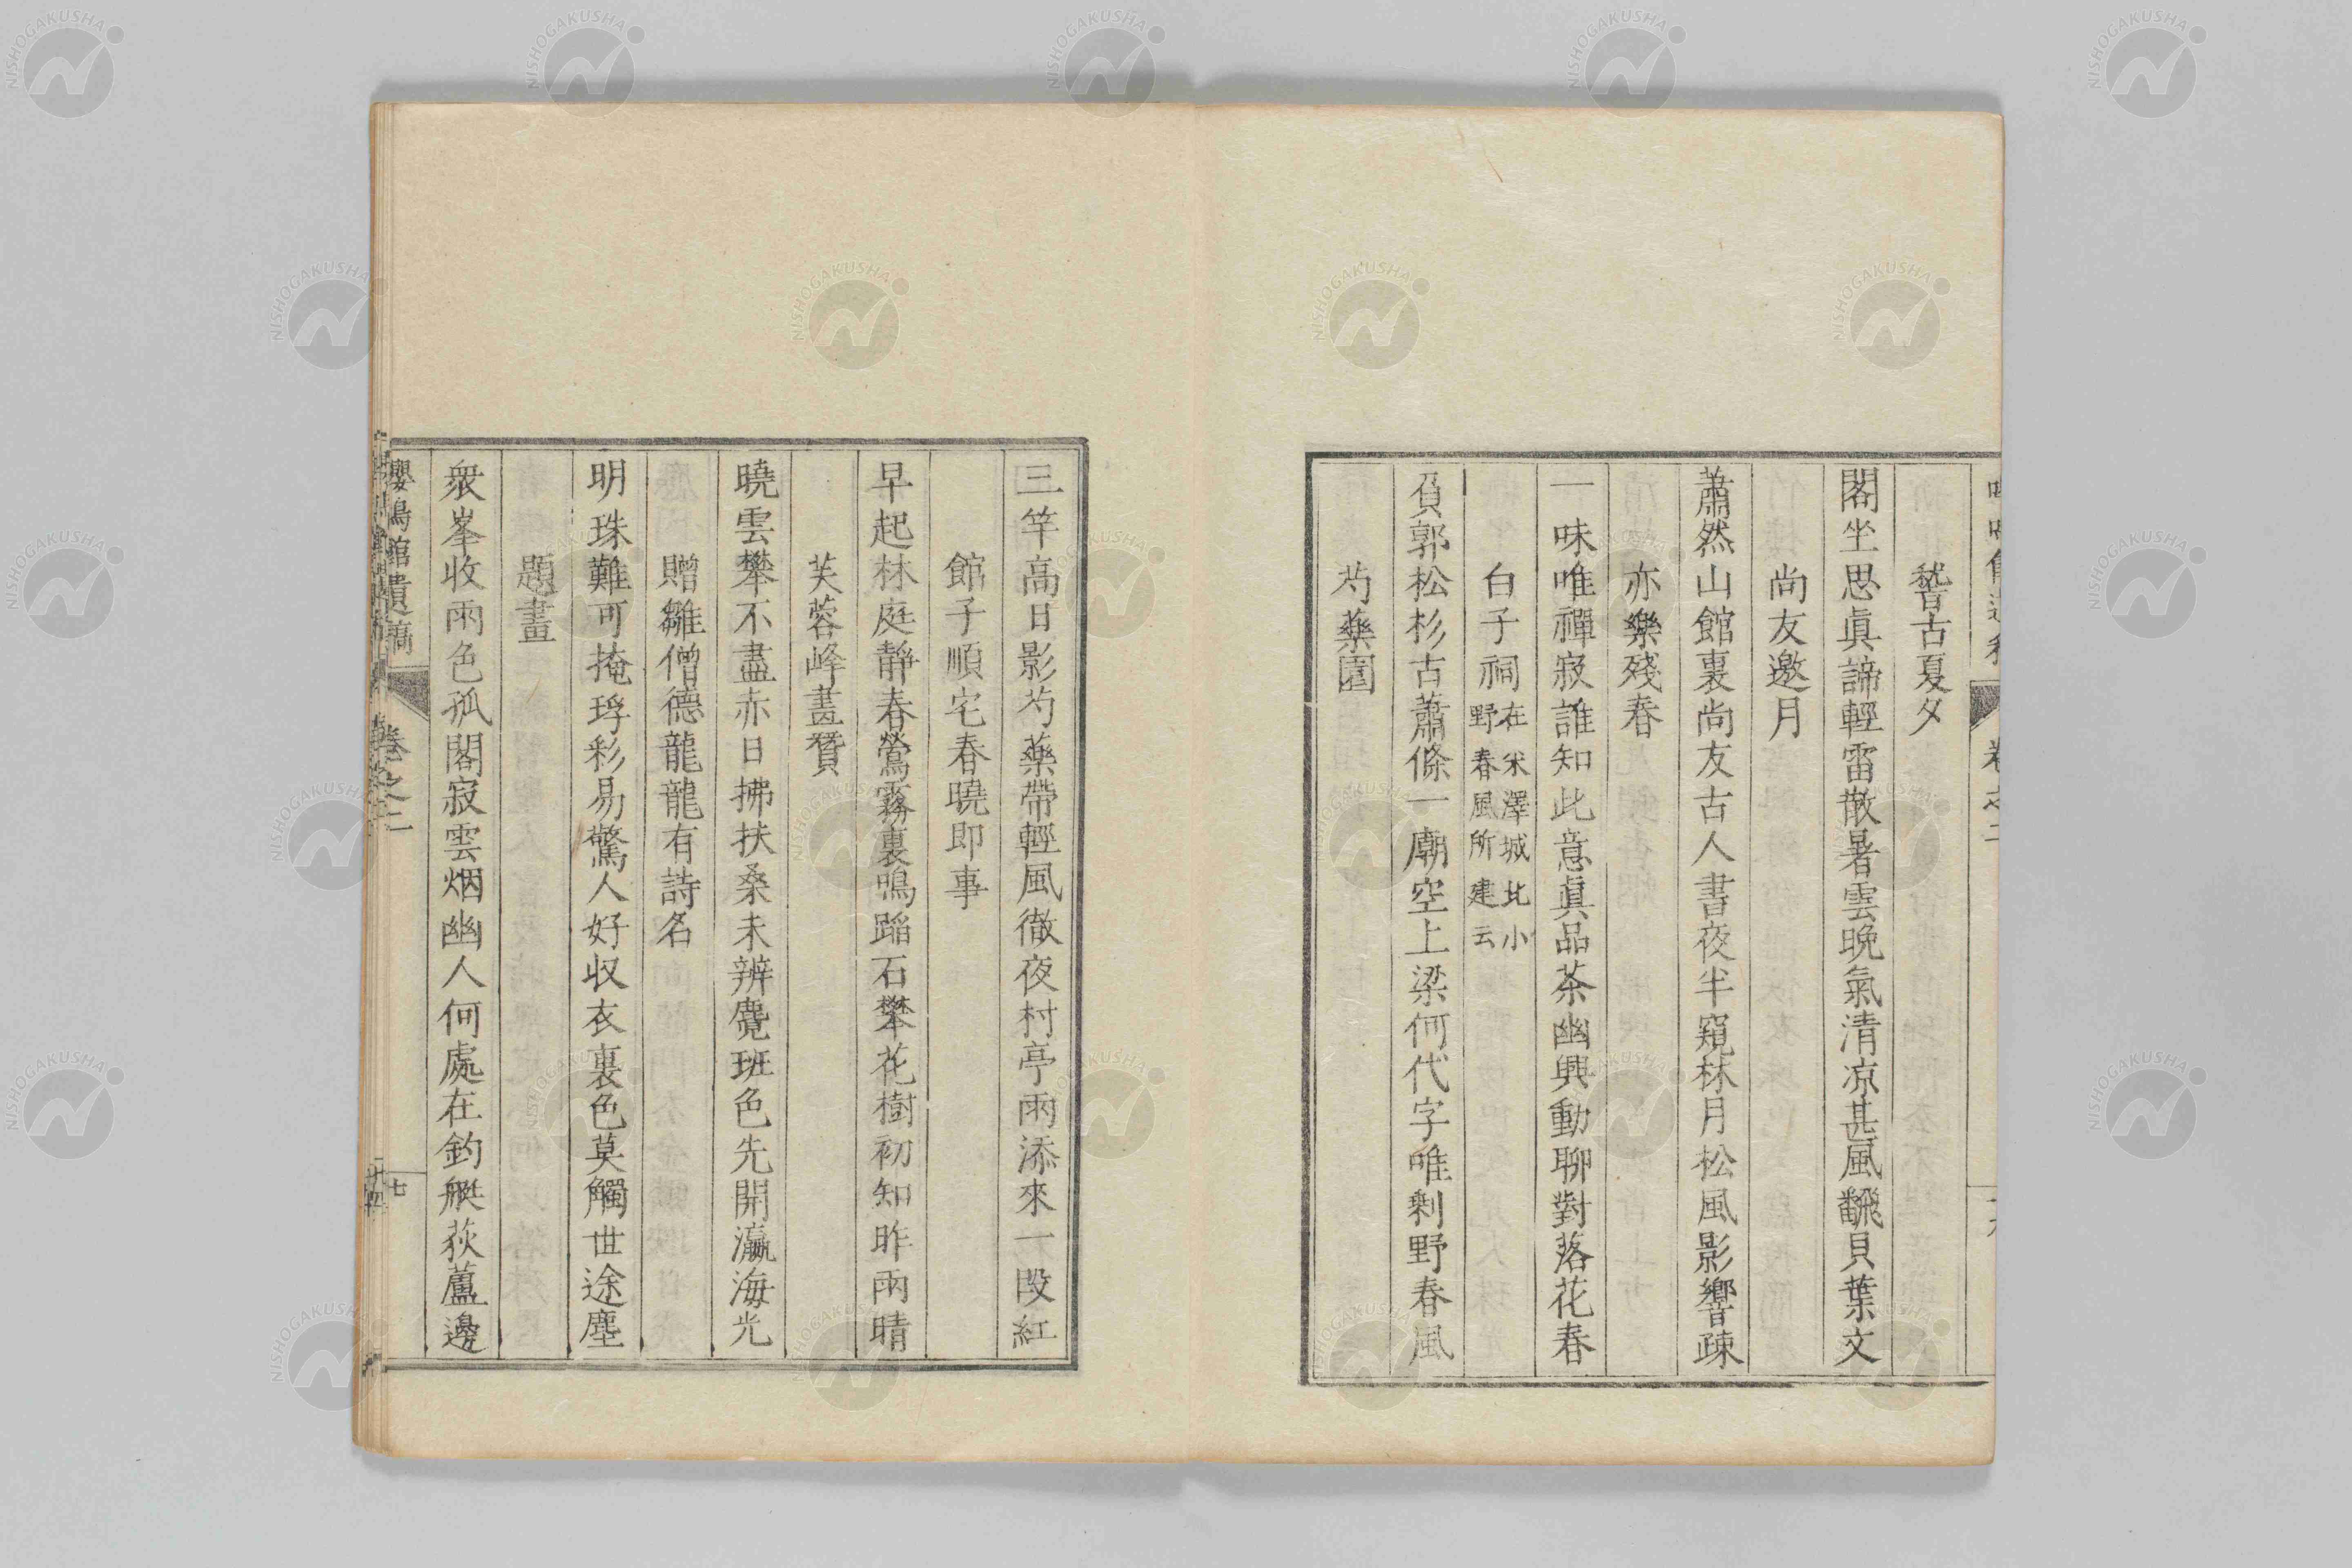 嵆古夏夕
閣坐思眞諦輕雷散暑雲晩氣清凉甚風飜貝葉文
尚友邀月
蕭然山館裏尚友古人書夜半窺林月松風影響疎
亦樂殘春
一味唯禪寂誰知此意眞品茶幽興動聊對落花春
白子祠在米澤城北小野春風所建云
負郭松杉古蕭條一廟空上梁何代字唯剩野春風
芍藥園
三竿高日影芍藥帶輕風徹夜村亭雨添來一段紅
館子順宅春曉即事
早起林庭靜春鶯霧裏鳴蹈石攀花樹初知昨雨晴
芙蓉峰畫贊
曉雲攀不盡赤日拂扶桑未辨麑班色先開瀛海光
贈雛僧德龍龍有詩名
明珠難可掩琈彩易驚人好収衣裏色莫觸世途塵
題畫
衆峯收雨色孤閣寂雲烟幽人何處在釣艇荻蘆邊
嚶鳴館遺稿
卷之二
七
NISHOGAKUSHA